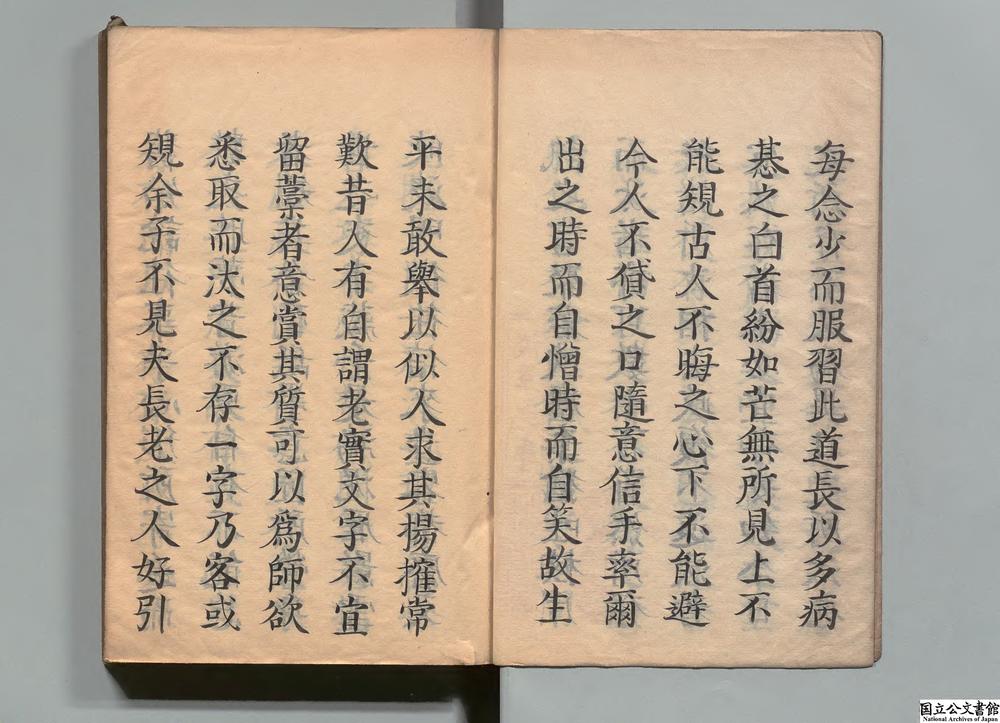 每念少而服習此道長以多病
惎之白首紛如芒無所見上不
能規古人不晦之心下不能避
今人不貸之口隨意信手率爾
出之時而自憎時而自笑故生
平未敢舉以似人求其揚搉常
歎昔人有自謂老實文字不宜
留藁者意賞其質可以爲師欲
悉取而汰之不存一字乃客或
規余子不見夫長老之人好引
国立公文書館
National Archives of Japan